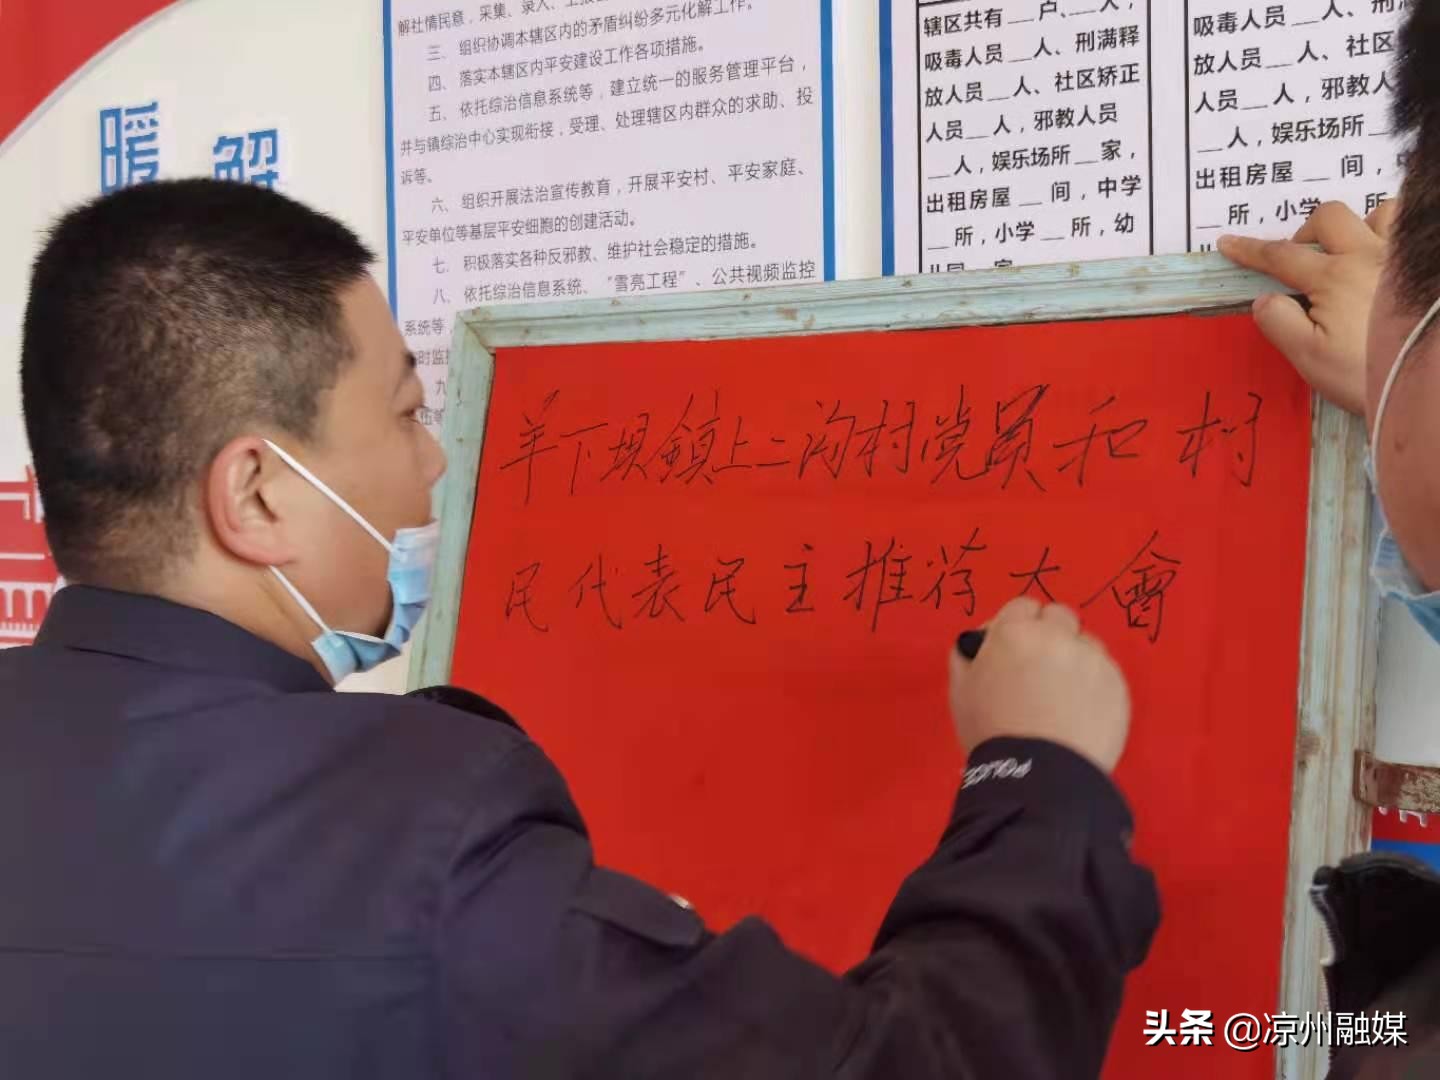 解社情民意，采集、录入、上报
三、组织协调本辖区内的矛盾纠纷多元化解工作。
四、落实本辖区内平安建设工作各项措施。
五、依托综治信息系统等，建立统一的服务管理平台，
并与镇综治中心实现衔接，受理、处理辖区内群众的求助、投
诉等。
六、组织开展法治宣传教育，开展平安村、平安家庭、
平安单位等基层平安细胞的创建活动。
七、积极落实各种反邪教、维护社会稳定的措施。
八、依托综治信息系统、“雪亮工程”、公共视频监控
系统等，
时监
九
伍等
辖区共有__户、__人，
吸毒人员__人、刑满释
放人员__人、社区矫正
人员__人，邪教人员
__人，娱乐场所__家，
出租房屋__间，中学
__所，小学__所，幼
吸毒人员__人、刑
放人员__人、社区
人员__人，邪教人
__人，娱乐场所
出租房屋__间，中
__所，小学__所
暖
解
羊下坝鎮上二沟村党员和村
民代表民主推荐大會
POLICE
头条 @凉州融媒